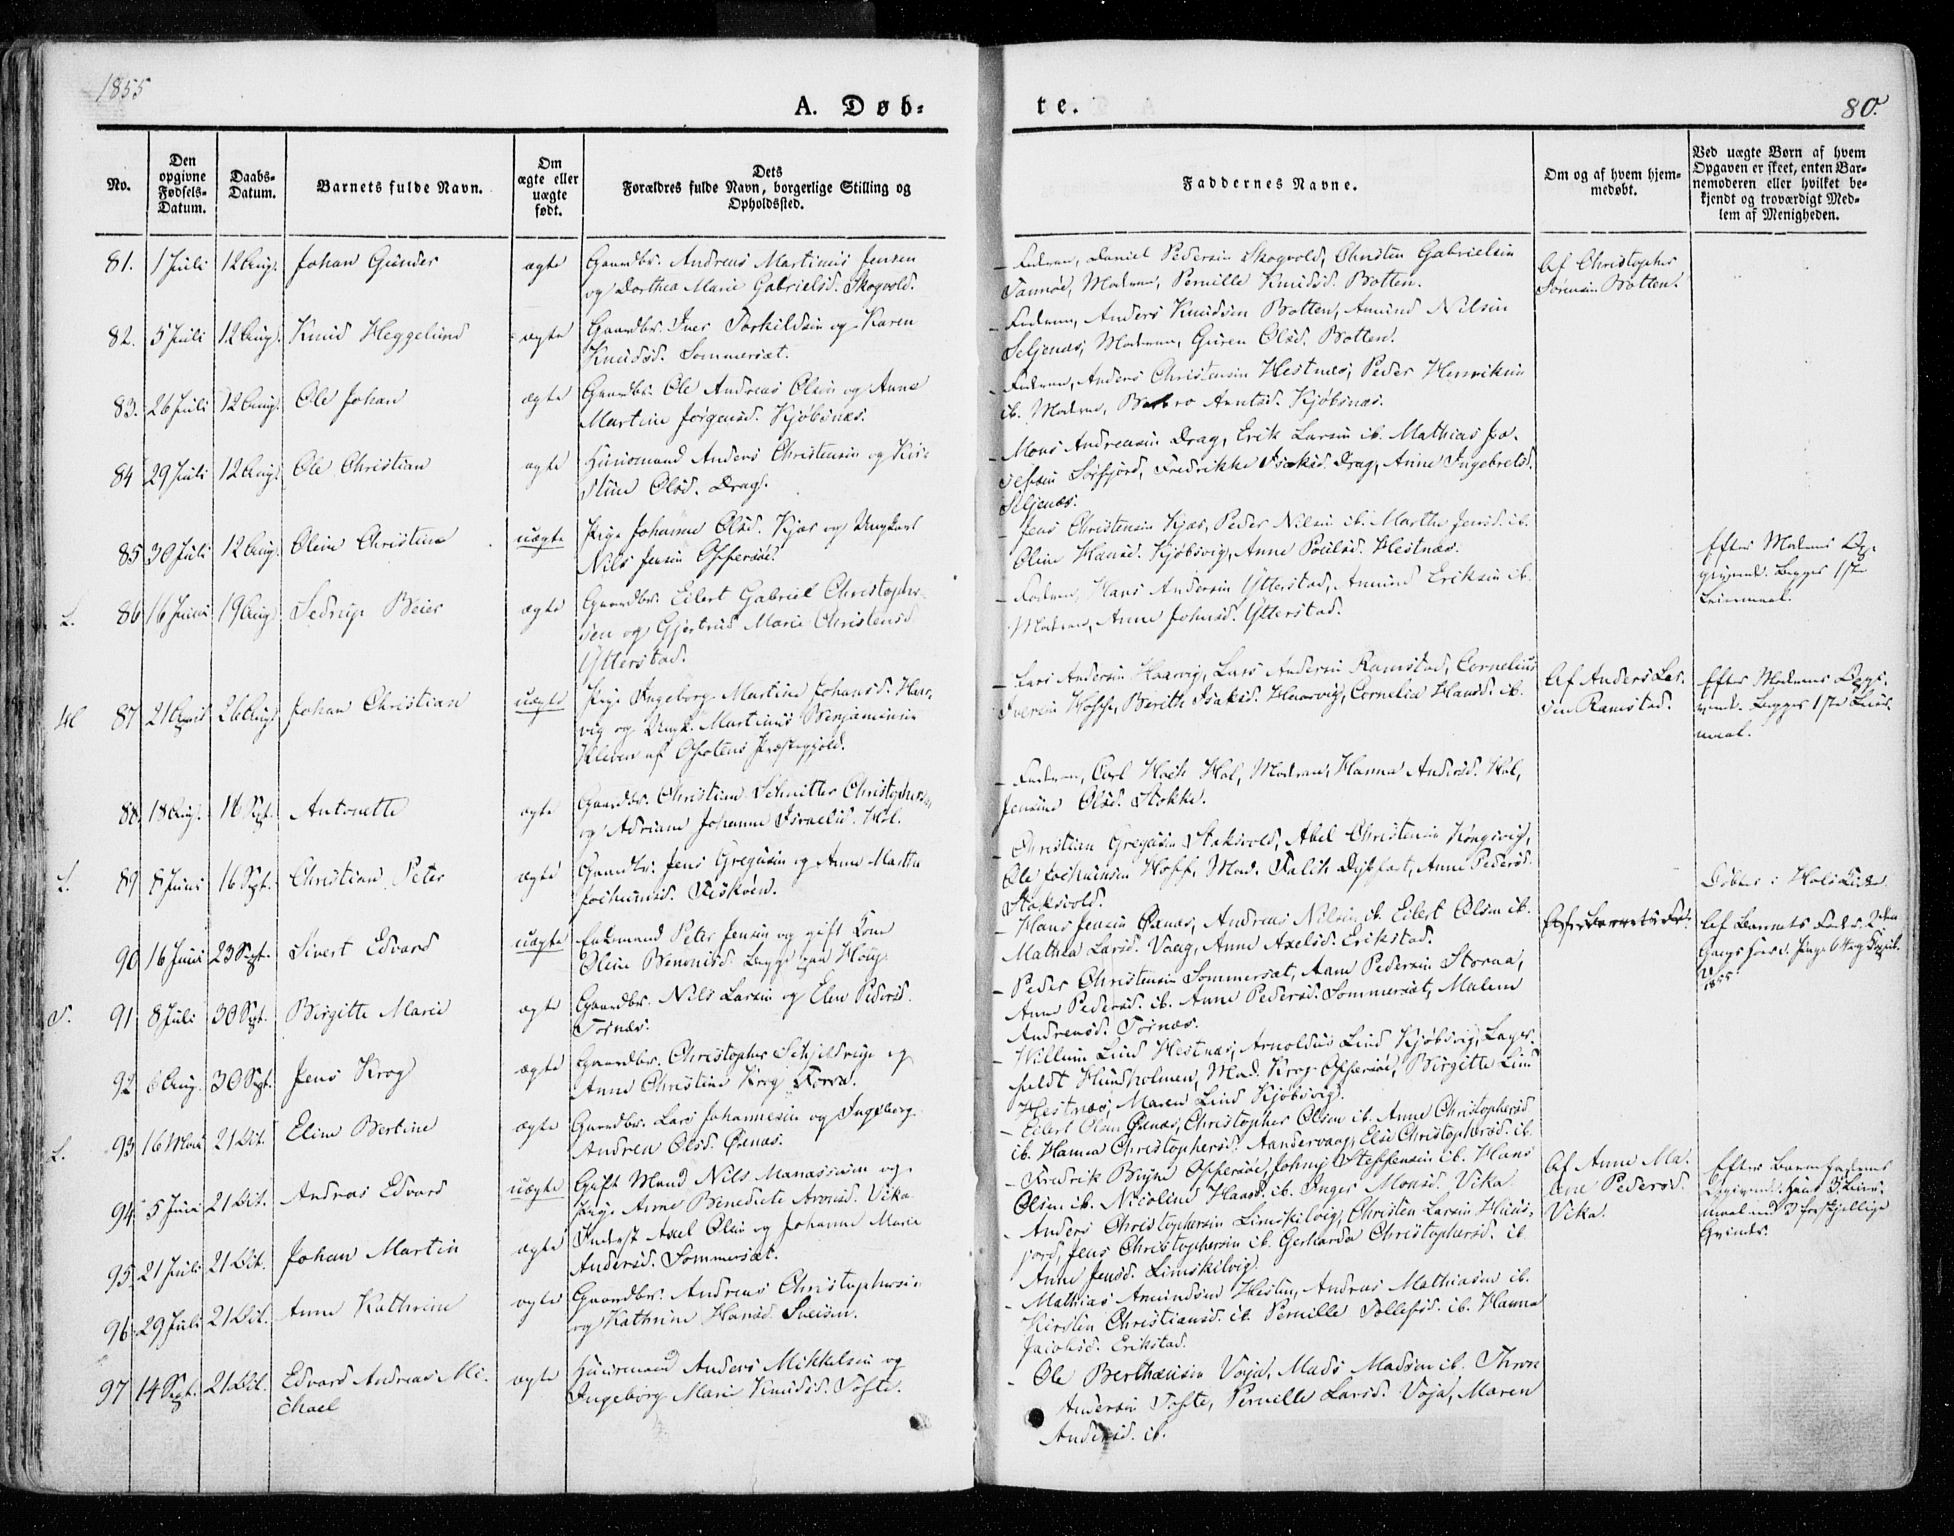 1855
A. Døb-
te.
80.
No.
Den opgivne Fødsels-Datum.
Daabs-Datum.
Barnets fulde Navn.
Om ægte eller uægte født.
Dets Forældres fulde Navn, borgerlige Stilling og Opholdssted.
Faddernes Navne.
Om og af hvem hjem-medøbt.
Ved uægte Børn af hvem Opgaven er skeet, enten Bar-nemoderen eller hvilket be-kjendt og troværdigt Med-lem af Menigheden.
81. 1 Juli 12 Aug. Johan Gunder ægte Gaardbr. Andreas Martinus Jensen
og Dorthea Marie Gabrielsd. Skogvold.
Faderen, Daniel Pedersen Skogvold, Christen Gabrielsen
Moderen, Pernille Knudsd. Botten.
Af Christopher
Sørensen Botten.
82. 5 Juli 12 Aug. Knud Heggelund ægte Gaardbr. Iver Torkildsen og Karen
Knudsd. Sommersæt.
Faderen, Anders Knudsen Botten, Amund Nilsen
Seljenæs, Moderen, Guren Olsd. Botten.
83. 26 Juli 12 Aug. Ole Johan ægte Gaardbr. Ole Andreas Olsen og Anne
Martine Jørgensd. Kjøbsnæs.
Faderen, Anders Christensen Hestnæs, Peder Henriksen
ib. Moderen, Barbro Arntsd. Kjøbsnæs.
84 29 Juli 12 Aug. Ole Christian ægte Huusmand Anders Christensen og Kir-
stine Olsd. Drag.
Mons Andreasen Drag, Erik Larsen ib. Mathias Jo-
sefsen Sørfjord, Fredrikke Isaksd. Drag, Anne Ingebretsd.
Seljenæs.
85 30 Juli 12 Aug. Oline Christine uægte Pige Johanne Olsd. Kjær og Ungkarl
Nils Jensen Offersøe.
Jens Christensen Kjær, Peder Nilsen ib. Marthe Jensd. ib.
Oline Hansd. Kjøbsvig, Anne Poulsd. Hestnæs.
Efter Moderens Op-
givende. Begges 1ste
Leiermaal.
L. 86 16 Juni 19 Aug. Sedrup Beier ægte Gaardbr. Eilert Gabriel Christopher-
sen og Gjertrud Marie Christensd.
Ytterstad.
Faderen, Hans Andersen Ytterstad, Amund Eriksen ib.
Moderen, Anne Johnsd. Ytterstad.
87 21 April 26 Aug. Johan Christian uægte Pige Ingeborg Martine Johansd. Haar-
vig og Ungk. Martinus Benjaminsen
Kleven af Ofotens Præstegjeld.
Lars Andersen Haarvig, Lars Andersen Ramstad, Cornelius
Iversen Hoff, Berith Isaksd. Haarvig, Cornelia Hansd. ib.
Af Anders Lar-
sen Ramstad.
Efter Moderens Opgi-
vende. Begges 1ste Leier-
maal.
88 18 Aug. 16 Sept. Antonette ægte Gaardbr. Christian Schnitler Christophersen
og Adriane Johanne Israelsd. Hol.
Faderen, Carl Hol, Moderen, Hanna Andersd. Hol,
Jensine Olsd. Stokke.
L. 89 8 Juni 16 Sept. Christian Peter ægte Gaardbr. Jens Gregusen og Anne Martha
Jochumsd. Fiskøen.
Christian Gregusen Staksvold, Abel Christensen Kongsvig,
Ole Jochumsen Hoff, Mad. Falch Dybfæst, Anne Pedersd.
Staksvold.
Døbter i Hols Kirke
90 16 Juni 23 Sept. Sivert Edvard uægte Enkemand Peter Jensen og gift Kone
Oline Benonisd. begge paa Houg.
Hans Jensen Øxnæs, Andreas Nilsen ib. Eilert Olsen ib.
Mathea Larsd. Vaag, Anne Axelsd. Erikstad.
Af Barnets Fader. 2den
Gangs
1855
91 8 Juli 30 Sept. Birgitte Marie ægte Gaardbr. Nils Larsen og Elen Pedersd.
Tornæs.
Peder Christensen Sommersæt, Arne Pedersen Storaa,
Anne Pedersd. ib. Anne Pedersd. Sommersæt, Malene
Andreasd. Tornæs.
92 6 Aug. 30 Sept. Jens Krog ægte Gaardbr. Christopher Schjeldrup og
Anne Christine Krog Korra.
Willum Lind Hestnæs, Arnoldus Lind Kjøbsvig, Lager-
feldt Hundholmen, Mad. Krog Offersøe, Birgitte Lind
Hestnæs, Maren Lind Kjøbsvig.
L. 93 16 Mai 21 Oct. Eline Bertine ægte Gaardbr. Lars Johannesen og Ingeborg
Andrea Olsd. Øxnæs.
Eilert Olsen Øxnæs, Christopher Olsen ib. Anne Christophersd.
ib. Hanna Christophersd. Sandervaag, Else Christophersd. ib.
94 5 Juni 21 Oct. Andreas Edvard uægte Gift Mand Nils Manassesen og
Pige Anne Benedicte Aronsd. Vika
Fredrik Offersøe, Johny Steffensen ib. Hans
Olsen ib. Nicoline Hansd. ib. Inger Monsd. Vika
Af Anne Ma-
lene Pedersd.
Vika.
Efter Barnefaderens
Opgivende. Hans 3. Leier-
maal med 3 forskjellige
Qvinder.
95 21 Juli 21 Oct. Johan Martin ægte Inderst Axel Olsen og Johanne Marie
Andersd. Sommersæt.
Anders Christophersen Limskilvig, Christen Larsen Huus-
jord, Jens Christophersen ib. Gerharda Christophersd. ib.
Anne Jensd. Limskilvig.
96 29 Juli 21 Oct. Anne Kathrine ægte Gaardbr. Andreas Christophersen
og Kathrine Hansd. Sveisen.
Mathias Amundsen Hesten, Andreas Mathiasen ib.
Kirsten Christiansd. ib. Pernille Tollefsd. ib. Hanna
Jacobsd. Erikstad.
97 14 Sept. 21 Oct. Edvard Andreas Mi-
chael ægte Huusmand Anders Mikkelsen og
Ingeborg Marie Knudsd. Tofte.
Ole Berthæusen Voja, Mads Madsen ib. Thron
Andersen Tofte, Pernille Larsd. Voja, Maren
Andersd. ib.